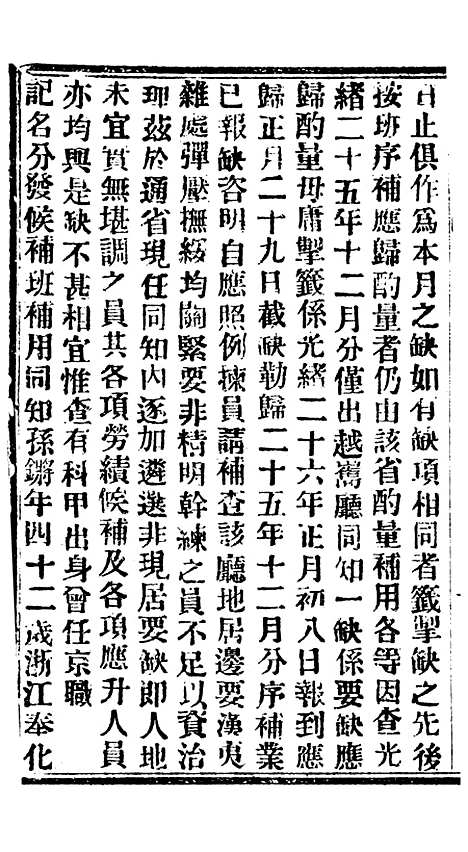 日止俱作爲本月之缺如有缺項相同者籤掣缺之先後
按班序補應歸酌量者仍由該省酌量補用各等因查光
緒二十五年十二月分僅出越嶲廳同知一缺係要缺應
歸酌量毋庸掣籤係光緒二十六年正月初八日報到應
歸正月二十九日截缺勒歸二十五年十二月分序補業
已報缺咨明自應照例揀員請補查該廳地居邊要漢夷
雜處彈壓撫綏均關緊要非精明幹練之員不足以資治
理茲於通省現任同知內逐加遴選非現居要缺即人地
未宜實無堪調之員其各項勞績候補及各項應升人員
亦均與是缺不甚相宜惟查有科甲出身曾任京職
記名分發候補班補用同知孫鏘年四十二歲浙江奉化